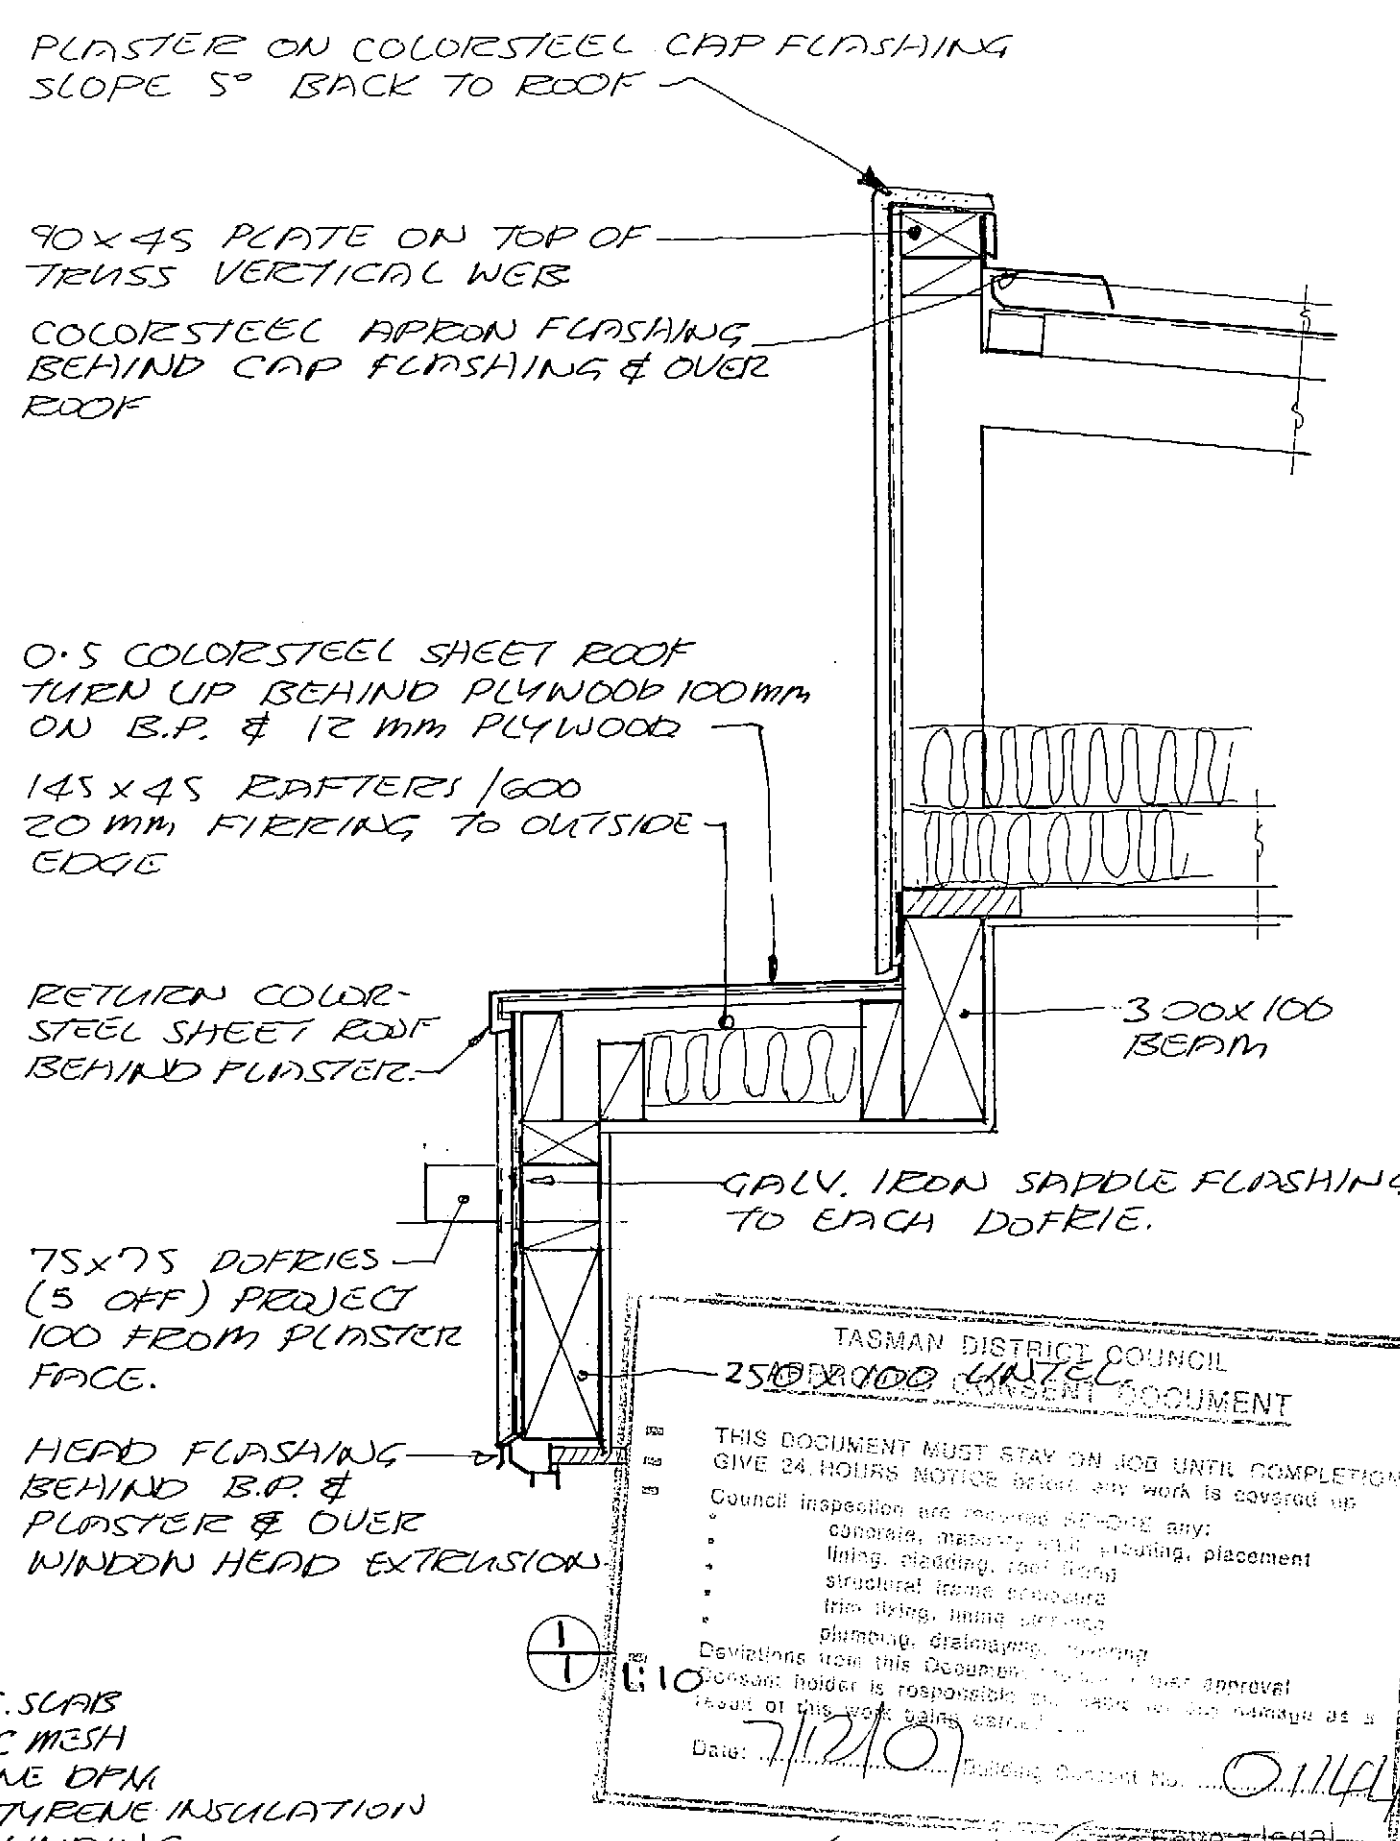 PLASTER ON COLORSTEEL CAP FLASHING
SLOPE 5° BACK TO ROOF
90 x 45 PLATE ON TOP OF
TRUSS VERTICAL WEB
COLORSTEEL APRON FLASHING
BEHIND CAP FLASHING & OVER
ROOF
0.5 COLORSTEEL SHEET ROOF
TURN UP BEHIND PLYWOOD 100mm
ON B.P. & 12 mm PLYWOOD
145 x 45 RAFTERS /600
20 mm FIRRING TO OUTSIDE
EDGE
RETURN COLOR-
STEEL SHEET ROOF
BEHIND PLASTER.
300x100
BEAM
GALV. IRON SADDLE FLASHING
TO EACH DOFRIE.
75x75 DOFRIES
(5 OFF) PROJECT
100 FROM PLASTER
FACE.
250x100 LINTEL.
HEAD FLASHING
BEHIND B.P. &
PLASTER & OVER
WINDOW HEAD EXTRUSION
TASMAN DISTRICT COUNCIL
CONSENT DOCUMENT
THIS DOCUMENT MUST STAY ON JOB UNTIL COMPLETION
GIVE 24 HOURS NOTICE before any work is covered up
Council inspection are required BEFORE any:
concrete, masonry placement
lining, cladding, roof
structural frame
trim fixing, lining
plumbing, drainlaying,
Deviations from this Document approval
Consent holder is responsible damage as a
result of this work being
Date: 7/12/01 Building Consent No.
1
1
1:10
SLAB
MESH
DPM
INSULATION